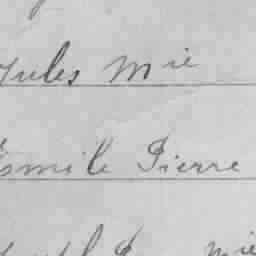 Jules Mie
Esmile Pierre
Mie